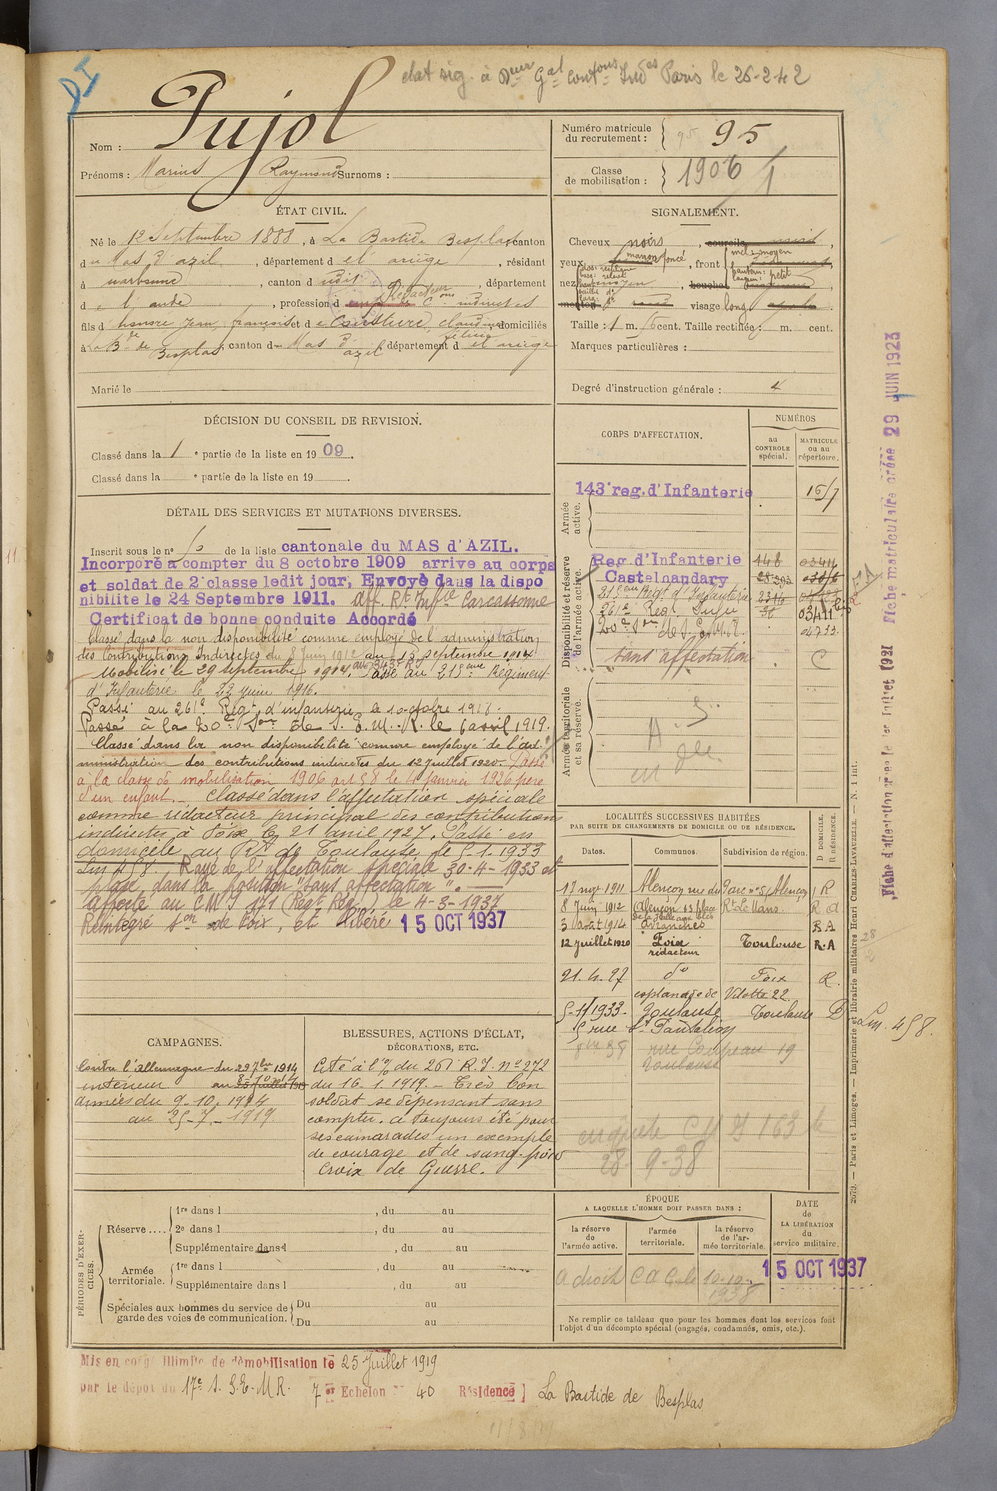 etat sig. à Paris le 26-2-42
Nom : Pujol
Prénoms : Marius Raymond Surnoms :
Numéro matricule du recrutement : 95
Classe de mobilisation : 1906
ÉTAT CIVIL.
Né le 12 Septembre 1888, à La Bastide Besplas canton
d u Mas d'azil, département d e l'ariège, résidant
à narbonne, canton d , département
d e l'aude, profession d indirectes
fils d honoré Jean, françois et d e claudine domiciliés
à La B de de Besplas, canton d u Mas d'azil, département d e l'ariège
Marié le
SIGNALEMENT.
Cheveux noirs, sourcils noirs,
yeux marron foncé, front moyen
nez moyen, bouche
menton visage long
Taille : 1 m. cent. Taille rectifiée : m. cent.
Marques particulières :
Degré d'instruction générale : 4
DÉCISION DU CONSEIL DE REVISION.
Classé dans la 1 e partie de la liste en 1909.
Classé dans la e partie de la liste en 19
DÉTAIL DES SERVICES ET MUTATIONS DIVERSES.
Inscrit sous le n° de la liste cantonale du MAS d'AZIL.
Incorporé à compter du 8 octobre 1909 arrive au corps
et soldat de 2e classe ledit jour, Envoyé dans la dispo
nibilite le 24 Septembre 1911. aff. Rt Inf ie Carcassonne
Certificat de bonne conduite Accordé
Classé dans la non disponibilité comme employé de l'administration
des Contributions Indirectes du 8 Juin 1912 au 13 septembre 1914
Mobilisé le 29 septembre 1914. Passé au 215 eme Régiment
d'Infanterie le 22 juin 1916.
Passé au 261e Régt d'infanterie le 10 octobre 1918.
Passé à la 20e Son de S. E. M. R. le 6 avril 1919.
Classé dans la non disponibilité comme employé de l'ad
ministration des contributions indirectes du 12 Juillet 1920. Passé
à la classe de mobilisation 1906 art 58 le 1er janvier 1926 père
d'un enfant. Classé dans l'affectation spéciale
comme rédacteur principal des contributions
indirectes à Foix le 21 avril 1927. Passé en
domicile au Rt de Toulouse le 5-1-1933
Lm 458. Rayé de l'affectation spéciale 30-4-1933 et
placé dans la position "sans affectation".
Affecté au C.M.I 171 (Regt Rég.), le 4-3-1937
Réintégré son de Foix, et libéré 15 OCT 1937
CORPS D'AFFECTATION.
NUMÉROS
au CONTROLE spécial.
MATRICULE ou au répertoire.
Armée active.
143e reg.d'Infanterie
Disponibilité et réserve de l'armée active.
Reg.d'Infanterie
Castelnaudary
215 eme Régt d'Infanterie
261e Régt Inf ie
20e Son de S.E.M.R.
sans affectation C
Armée territoriale et sa réserve.
LOCALITÉS SUCCESSIVES HABITÉES
PAR SUITE DE CHANGEMENTS DE DOMICILE OU DE RÉSIDENCE.
Dates. Communes. Subdivision de région. D DOMICILE. R RÉSIDENCE.
17 nov. 1911 Alençon rue du Parc n° 5 Alençon R
8 Juin 1912 Alençon 13 place Rt Le Mans R
3 août 1914 Avranches R A
12 Juillet 1920 Foix rédacteur Toulouse R.A
21.4.27 do Foix R.
esplanade de Vilotte 22
5-1-1933 Toulouse Toulouse D
5 rue St Pantaléon
rue 19
Toulouse
enquete C M I 163 le
28-9-38
Lm. 458.
CAMPAGNES.
Contre l'allemagne du 29 7bre 1914
intérieur au
armées du 9-10-1914
au 25-7-1919.
BLESSURES, ACTIONS D'ÉCLAT, DÉCORATIONS, ETC.
Cité à l'O/ du 261 R.I. N° 272
du 16.1.1919. Très bon
soldat se dépensant sans
compter. a toujours été pour
ses camarades un exemple
de courage et de sang-froid
Croix de Guerre.
PÉRIODES D'EXERCICES.
Réserve .... 1re dans l , du au
2e dans l , du au
Supplémentaire dans l , du au
Armée territoriale. 1re dans l , du au
Supplémentaire dans l , du au
Spéciales aux hommes du service de garde des voies de communication. Du au
Du au
ÉPOQUE
A LAQUELLE L'HOMME DOIT PASSER DANS :
la réserve de l'armée active.
l'armée territoriale.
la réserve de l'armée territoriale.
DATE de LA LIBÉRATION du service militaire.
15 OCT 1937
Ne remplir ce tableau que pour les hommes dont les services font
l'objet d'un décompte spécial (engagés, condamnés, omis, etc.).
Mis en congé illimité de démobilisation le 25 Juillet 1919
par le dépôt du 17e S. E. M. R. 7 er Echelon N° 40 Résidence La Bastide de Besplas
Fiche matriculaire créée 29 JUIN 1923
2079. — Paris et Limoges. — Imprimerie et librairie militaires Henri CHARLES-LAVAUZELLE. — N. 1 int.